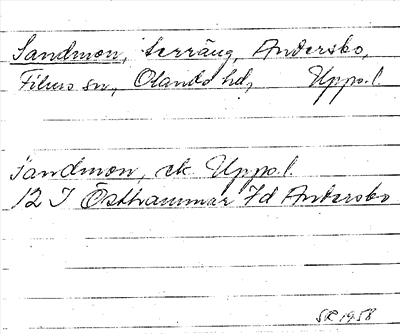 Sandmon, terräng, Andersbo,
Films sn, Olands hd, Upps.l.
Sandmon, ek Upps.l.
12 I Östhammar 7d Andersbo
SR 1958